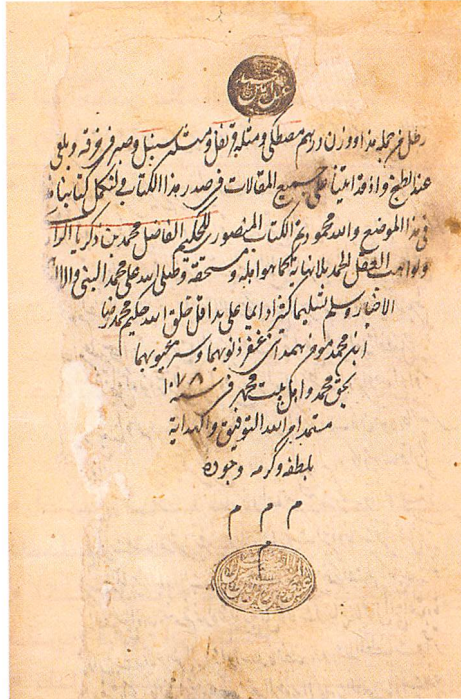 رطل فی جمله هذا ووزن درهم مصطکی ومثله قرنفل ومثله سنبل وصیر فی خرقة ویلقی
عند الطبخ واذ قد اتینا علی جمیع المقالات فی صدر هذا الکتاب فلنکمل کتابنا هذا
فی هذا الموضع والله محمود تم الکتاب المنصوری للحکیم الفاضل محمد بن زکریا الرازی
ولواهب العقل الحمد بلا نهایة کما هو اهله ومستحقه وصلی الله علی محمد النبی واله
الاخیار وسلم تسلیما کثیرا دایما علی ید اقل خلق الله حکیم محمد رضا
ابن محمد مومن همدانی غفر ذنوبهما وستر عیوبهما
بحق محمد واهل بیت محمد فی سنه ۱۰۷۸
مستمدا من الله التوفیق والهدایة
بلطفه وکرمه وجوده
م م م